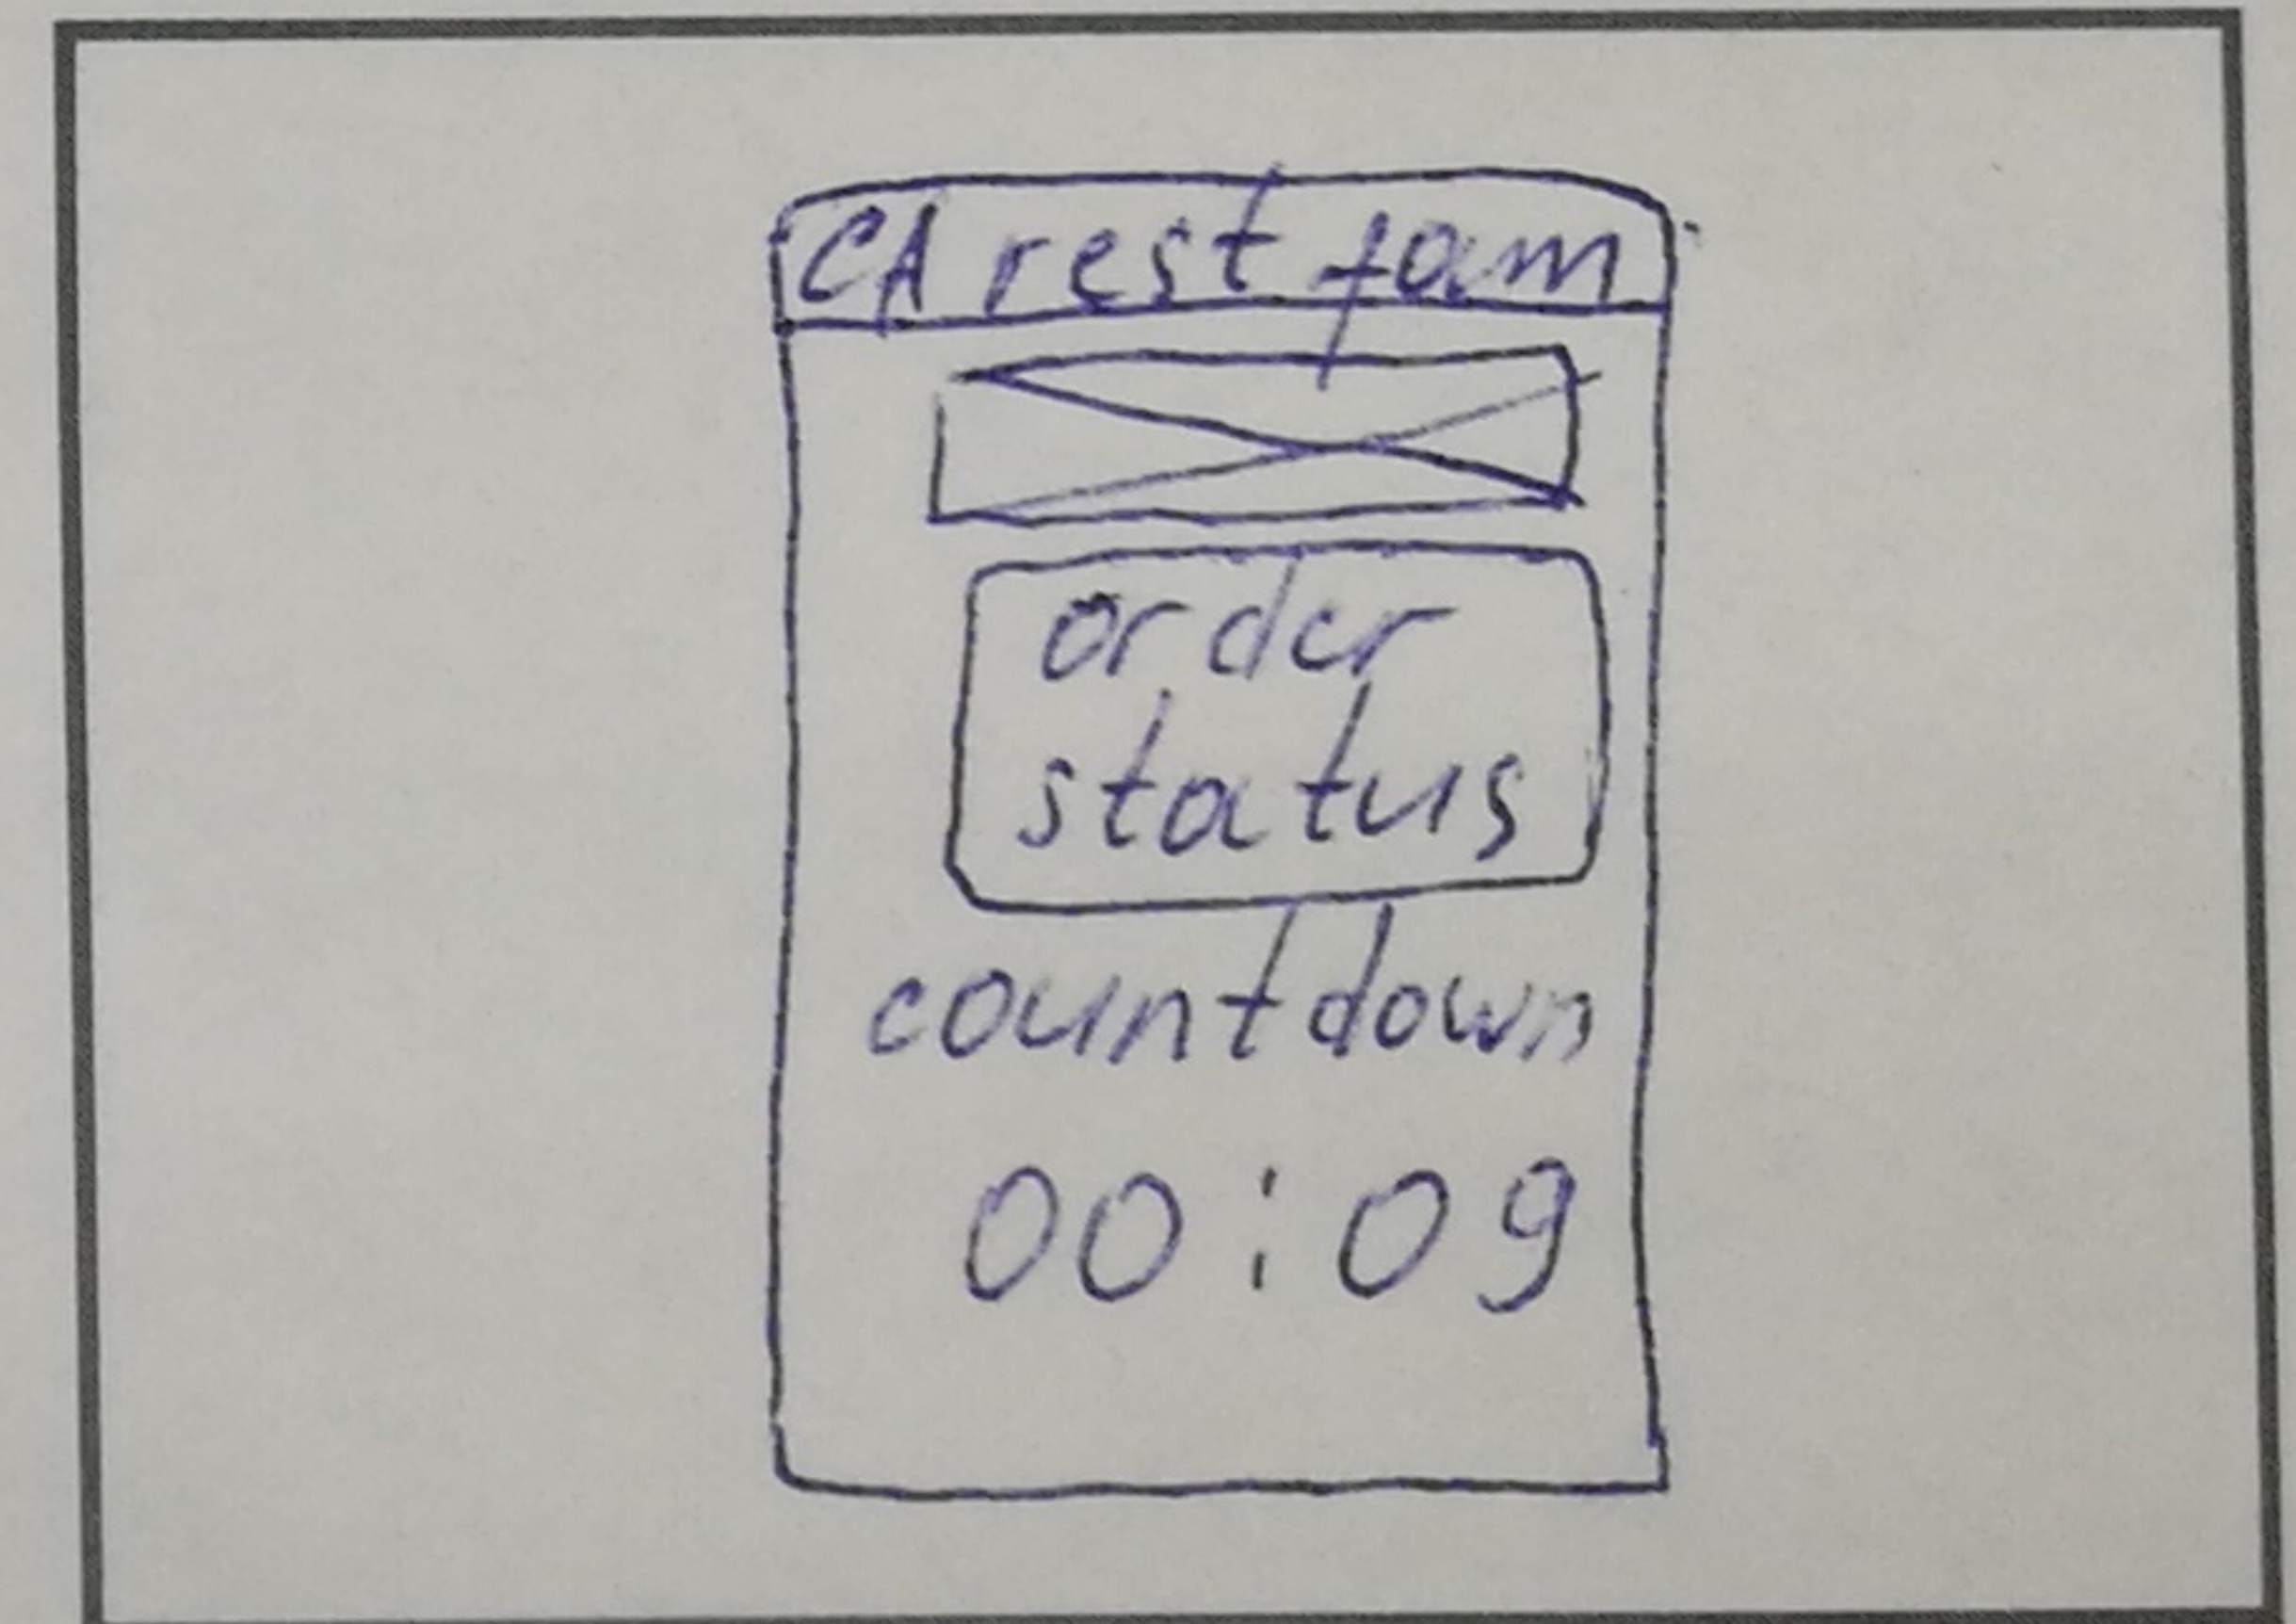 CA rest fam
order
status
countdown
00:09